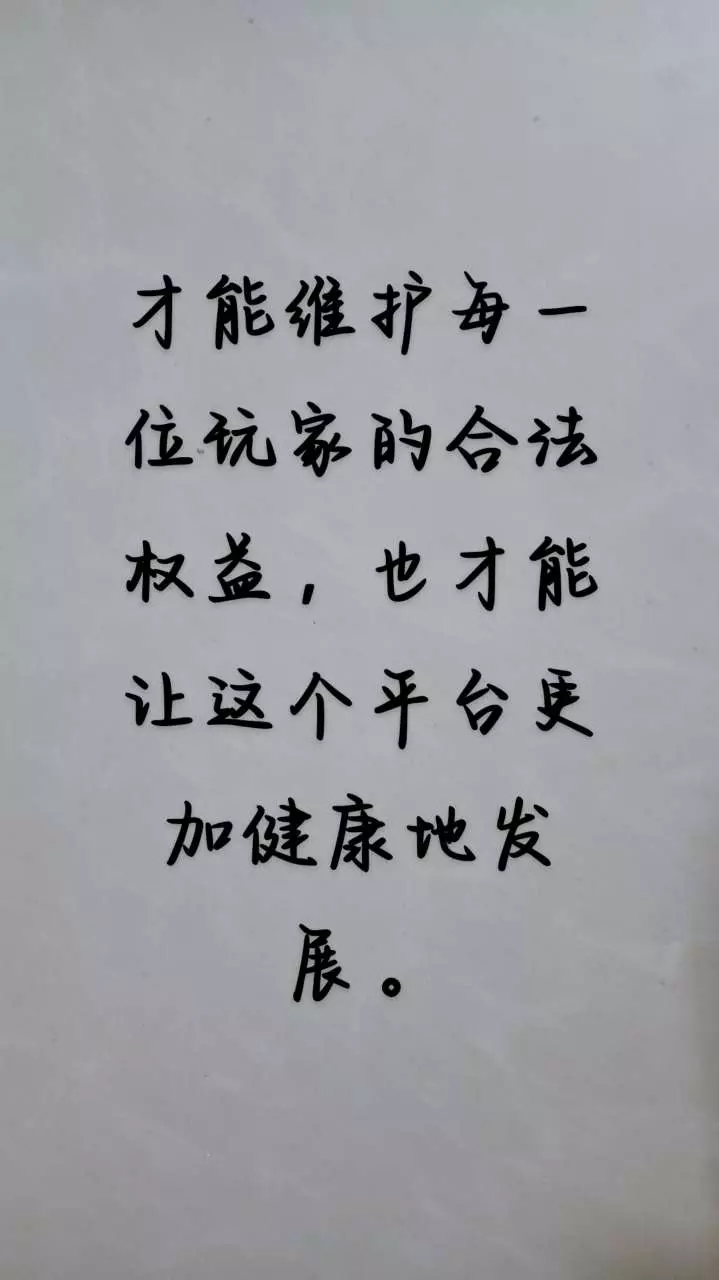 才能维护每一
位玩家的合法
权益，也才能
让这个平台更
加健康地发
展。